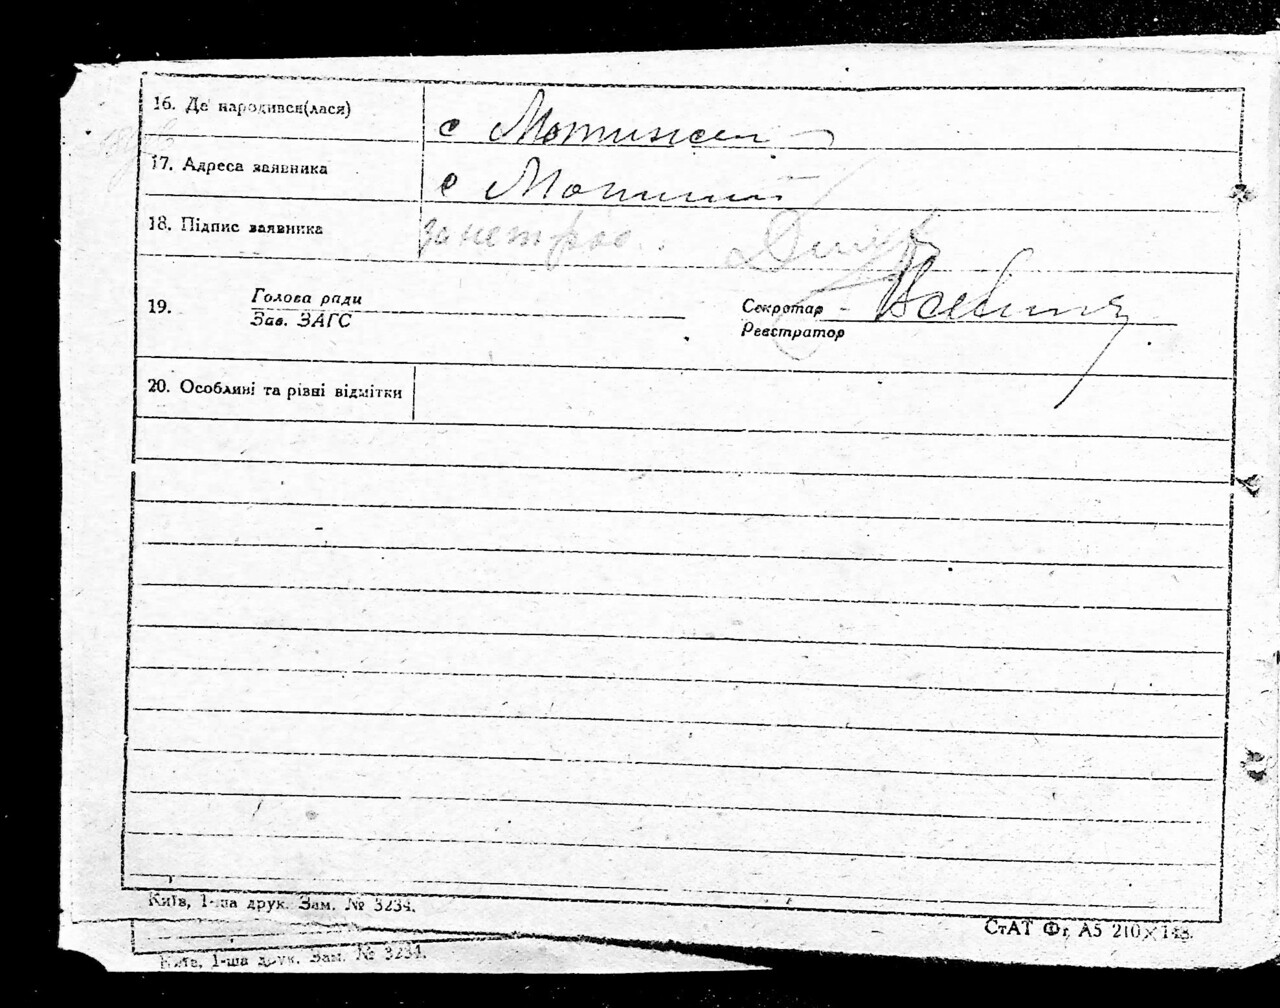 16. Де народився(лася)
с Мотижен
17. Адреса заявника
с Мотижин
18. Підпис заявника
19. Голова ради
Зав. ЗАГС
Секретар
Реєстратор
20. Особливі та різні відмітки
Київ, 1-ша друк. Зам. № 3234.
СтАТ Фг А5 210×148.
Київ, 1-ша друк. Зам. № 3234.